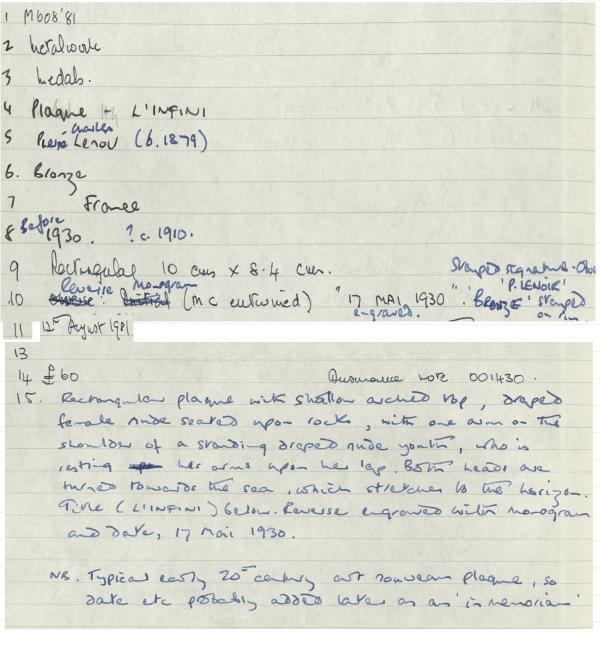 1 M608'81
2 Metalwork
3 Medals.
4 Plaque - L'INFINI
5 Pierre Charles Lenoir (b. 1879)
6. Bronze
7 France
8 Before 1930. ? c. 1910.
9 Rectangular 10 cms x 8.4 cms. Stamped signature - Obv
'P. LENOIR'
10 Reverse: monogram (MC entwined) "17 MAI 1930" engraved. 'BRONZE' stamped on rim
11 12th August 1981
13
14 £60 Insurance note 001430.
15. Rectangular plaque with shallow arched top, draped
female nude seated upon rocks, with one arm on the
shoulder of a standing draped nude youth, who is
resting his arms upon her lap. Both heads are
turned towards the sea, which stretches to the horizon.
Title (L'INFINI) below. Reverse engraved with monogram
and date, 17 Mai 1930.
NB. Typical early 20th century art nouveau plaque, so
date etc probably added later as an 'in memoriam'